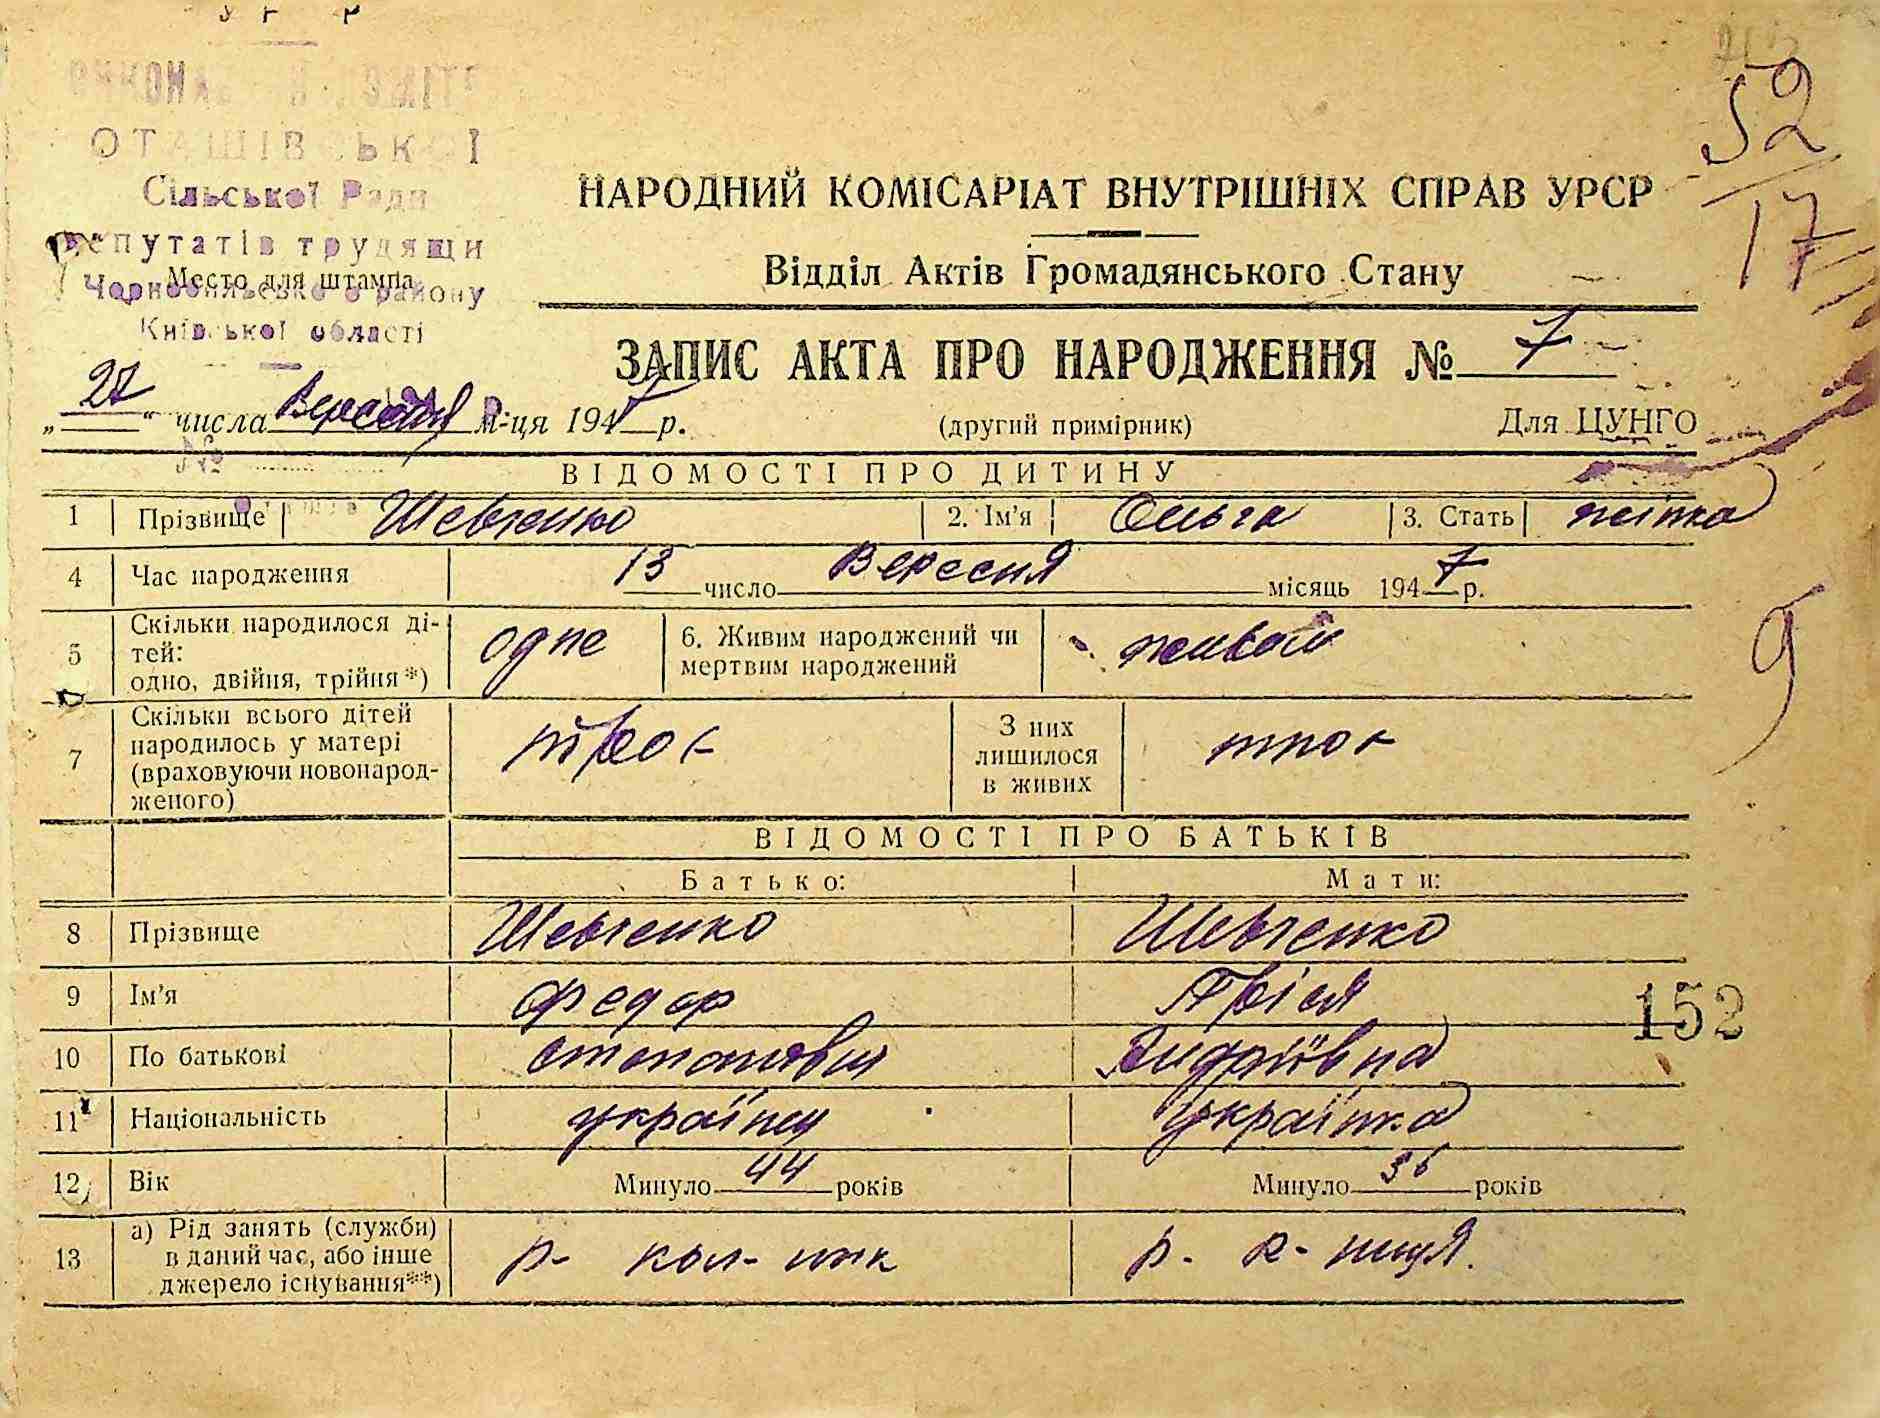 УРСР
ВИКОНАВЧИЙ КОМІТЕТ
ОТАШІВСЬКОЇ
Сільської Ради
Депутатів трудящи
Место для штампа
Чорнобильсько о району
Київської області
52
17
НАРОДНИЙ КОМІСАРІАТ ВНУТРІШНІХ СПРАВ УРСР
Відділ Актів Громадянського Стану
ЗАПИС АКТА ПРО НАРОДЖЕННЯ № 7
„27“ числа Вересня м-ця 1947 р. (другий примірник) Для ЦУНГО
№
ВІДОМОСТІ ПРО ДИТИНУ
1 Прізвище Шевченко 2. Ім'я Ольга 3. Стать жінка
4 Час народження 13 число Вересня місяць 1947 р.
5 Скільки народилося ді-
тей:
одно, двійня, трійня*) одне 6. Живим народжений чи
мертвим народжений живою
9
7 Скільки всього дітей
народилось у матері
(враховуючи новонарод-
женого) троє З них
лишилося
в живих троє
ВІДОМОСТІ ПРО БАТЬКІВ
Батько: Мати:
8 Прізвище Шевченко Шевченко
9 Ім'я Федор
152
10 По батькові Степанович Андріївна
11 Національність українец українка
12 Вік Минуло 44 років Минуло 36 років
13 а) Рід занять (служби)
в даний час, або інше
джерело існування**) р- кол- ник р. к- ниця.